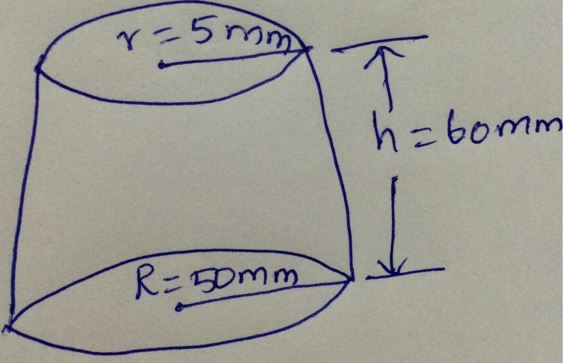 r=5mm
h=60mm
R=50mm